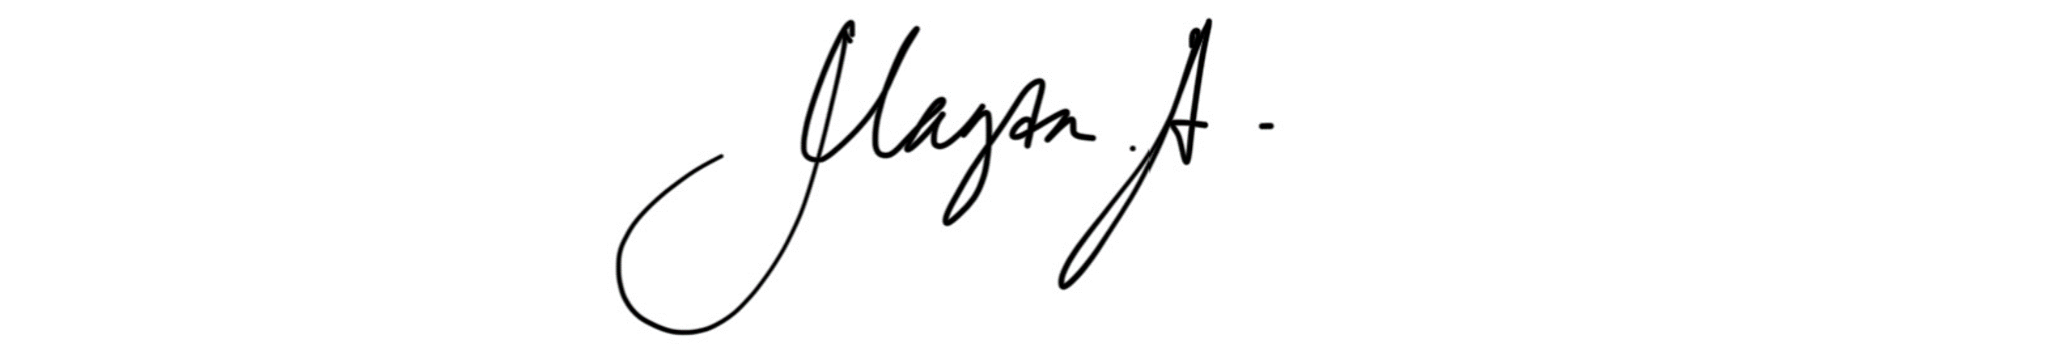 Mayan . A -